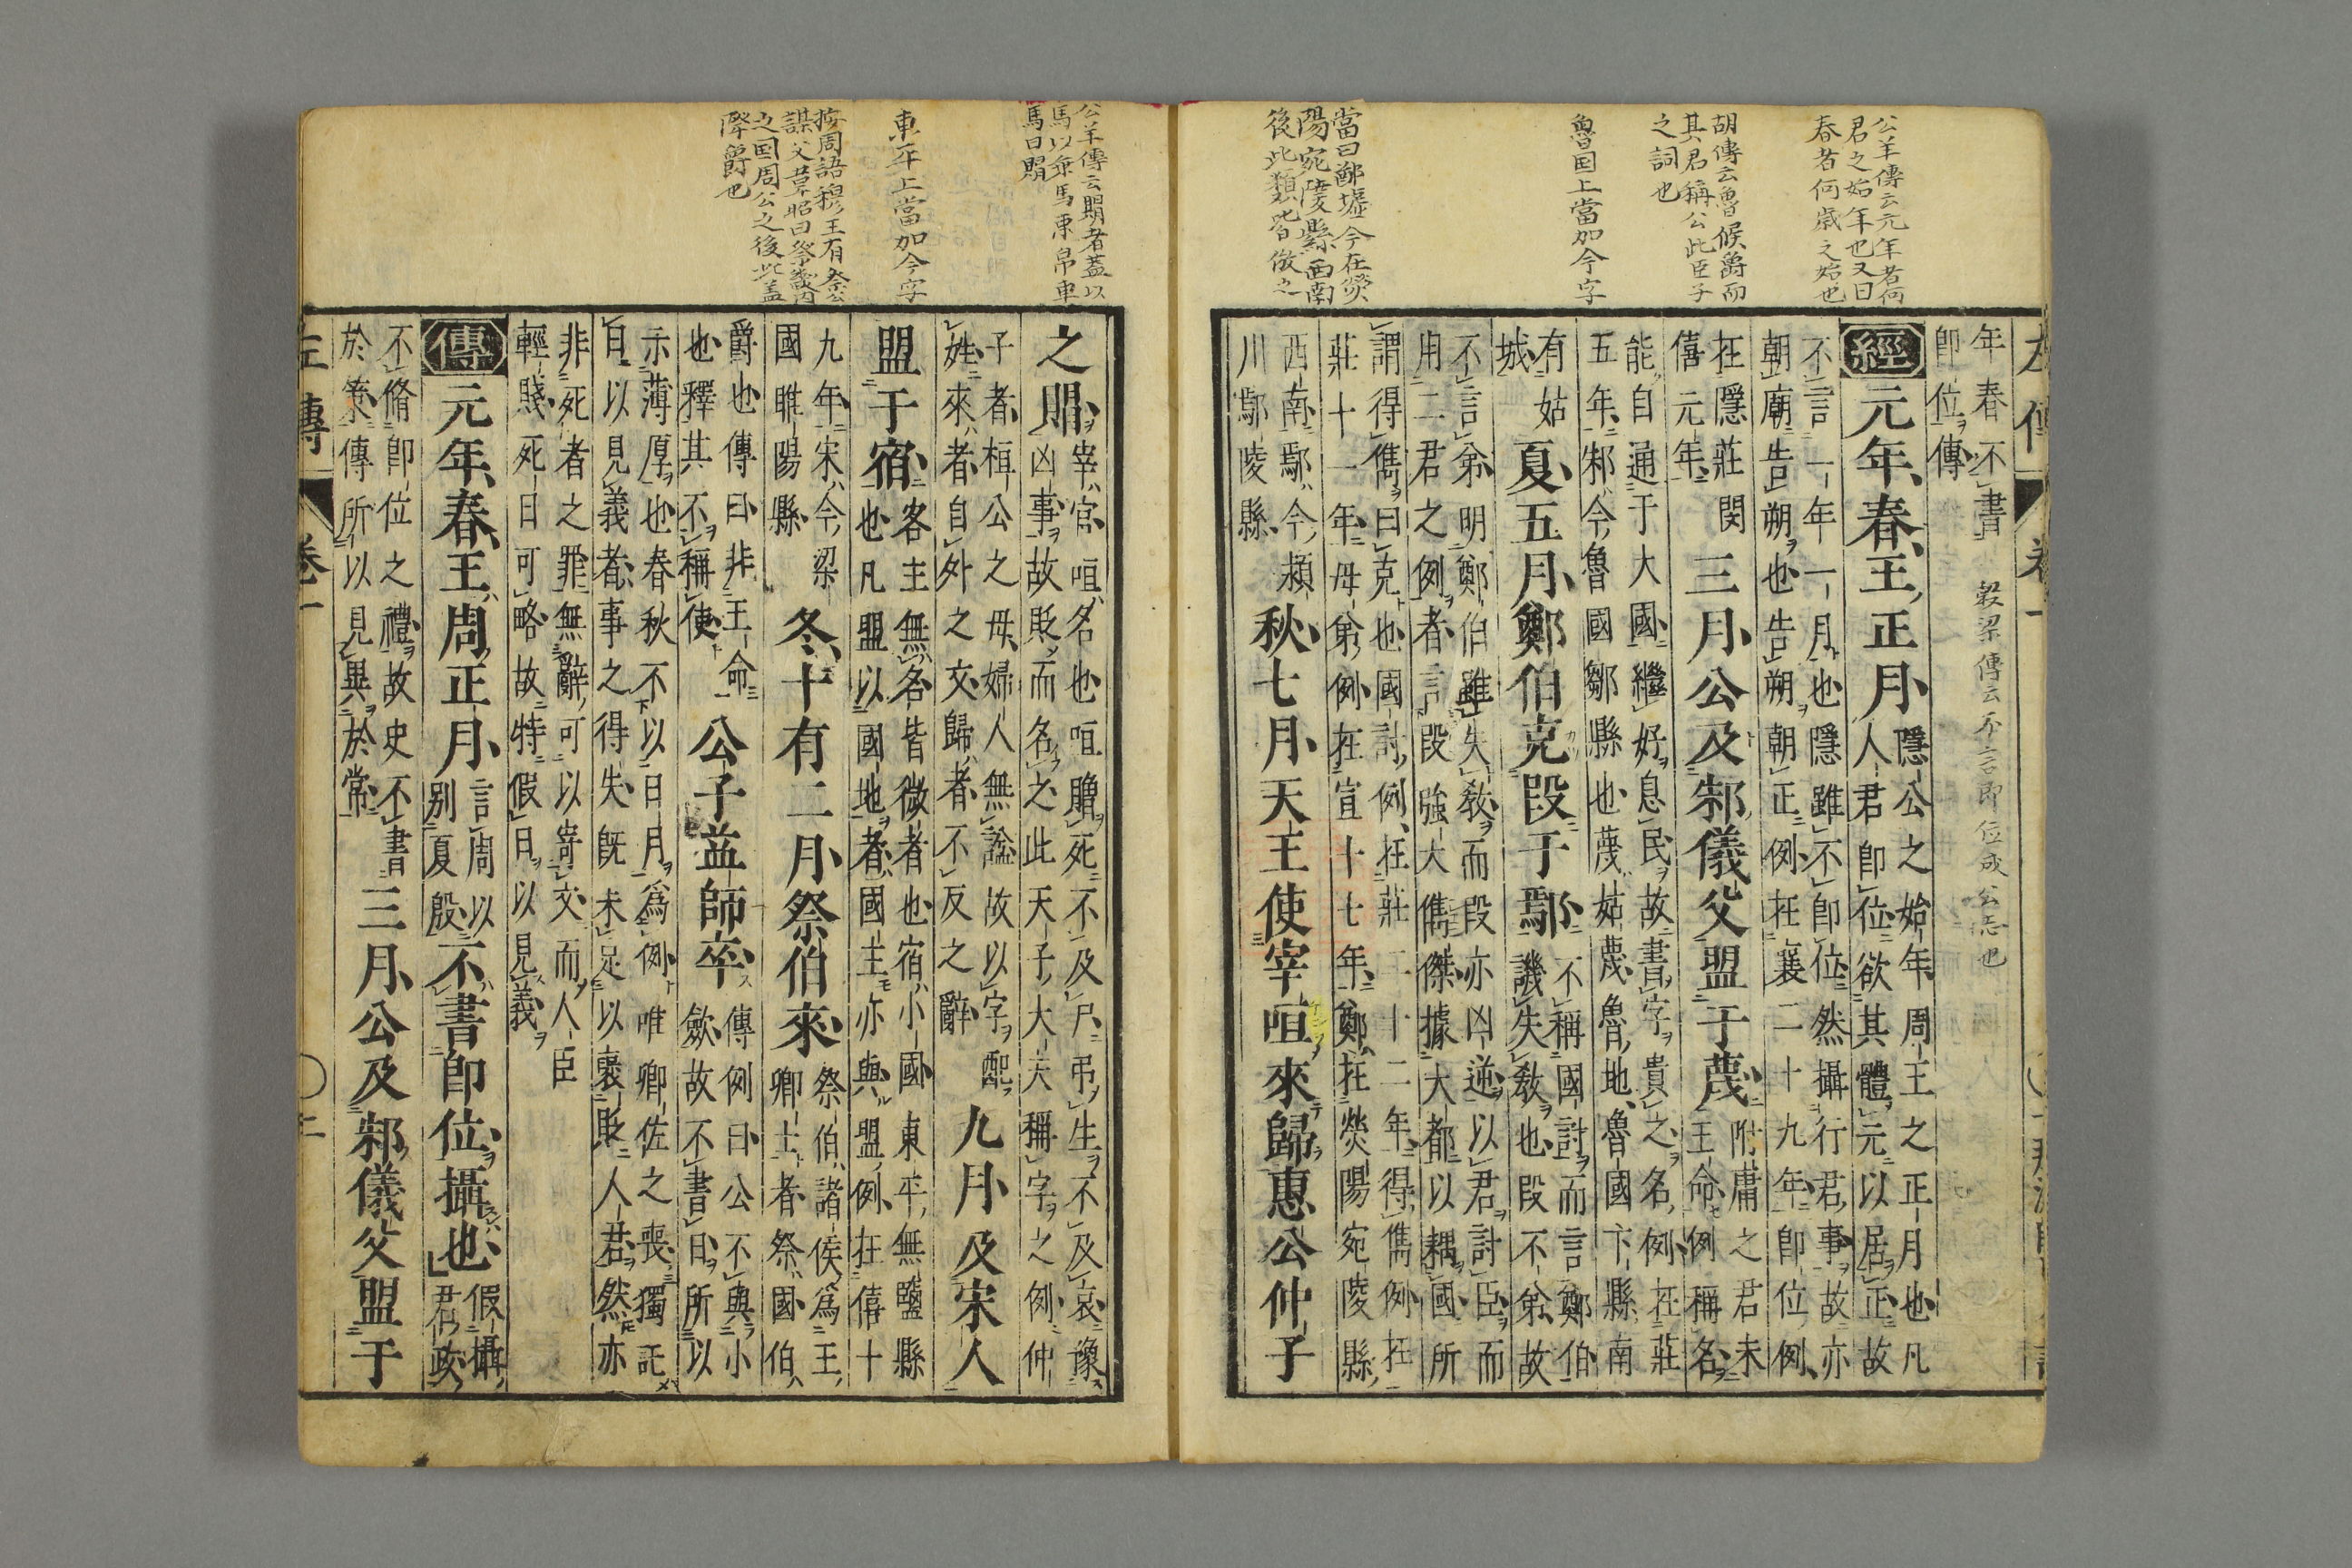 公羊傳云元年者何
君之始年也又曰
春者何歳之始也
胡傳云魯侯爵而
其君稱公此臣子
之詞也
魯国上當加今字
當曰鄢墟今在熒
陽宛陵縣西南
後此類皆倣之
年春不書
即位傳
穀梁傳云不言即位成公志也
經元年春王正月
隱公之始年周王之正月也凡
人君即位欲其體元以居正故
不言一年一月也隱雖不即位然攝行君事故亦
朝廟告朔也告朔朝正例在襄二十九年即位例
在隱莊閔
僖元年
三月公及邾儀父盟于蔑
附庸之君未
王命例稱名
能自通于大國繼好息民故書字貴之名例在莊
五年邾今魯國鄒縣也蔑姑蔑魯地魯國卞縣南
有姑
城
夏五月鄭伯克段于鄢
不稱國討而言鄭伯
譏失教也段不弟故
不言弟明鄭伯雖失教而段亦凶逆以君討臣而
用二君之例者言段強大儁傑據大都以耦國所
謂得儁曰克也國討例在莊二十二年得儁例在
莊十一年母弟例在宣十七年鄭在熒陽宛陵縣
西南鄢今潁
川鄢陵縣
秋七月天王使宰咺來歸惠公仲子
公羊傳云賵者蓋以
馬以乘馬束帛車
馬曰賵
東平上當加今字
按周語穆王有祭公
謀父韋昭曰祭畿内
之国周公之後此蓋
降爵也
之賵
宰官咺名也咺贈死不及尸弔生不及哀豫
凶事故貶而名之此天子大夫稱字之例仲
子者桓公之母婦人無謚故以字配
姓來者自外之交歸者不反之辭
九月及宋人
盟于宿
客主無名皆微者也宿小國東平無鹽縣
也凡盟以國地者國主亦與盟例在僖十
九年宋今梁
國睢陽縣
冬十有二月祭伯來
祭伯諸侯爲王
卿士者祭國伯
爵也傳曰非王命
也釋其不稱使
公子益師卒
傳例曰公不與小
歛故不書日所以
示薄厚也春秋不以日月爲例唯卿佐之喪獨託
日以見義者事之得失既未足以襃貶人君然亦
非死者之罪無辭可以寄文而人臣
輕賤死日可略故特假日以見義
傳元年春王周正月
言周以
别夏殷
不書即位攝也
假攝
君政
不脩即位之禮故史不書
於策傳所以見異於常
三月公及邾儀父盟于
左傳 卷一 〇二